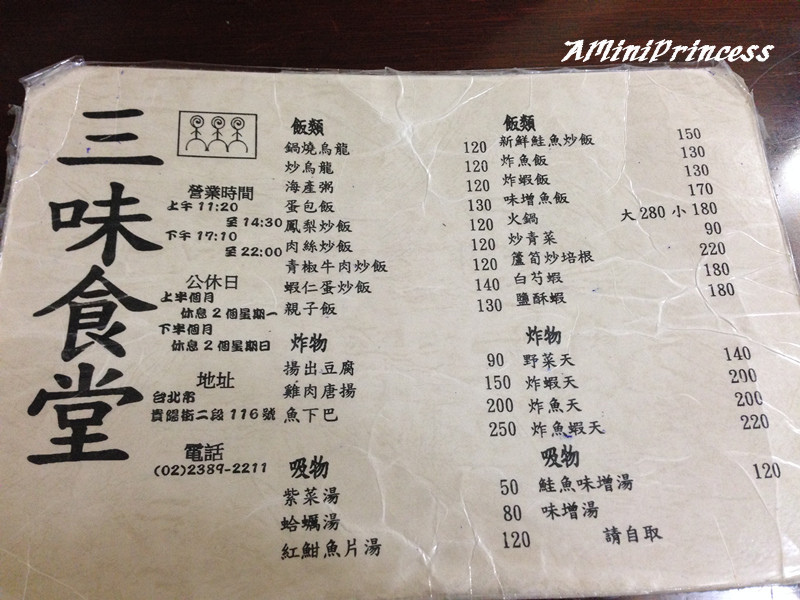 AMiniPrincess
三味食堂
營業時間
上午 11:20
至 14:30
下午 17:10
至 22:00
公休日
上半個月
休息 2 個星期一
下半個月
休息 2 個星期日
地址
台北市
貴陽街二段 116 號
電話
(02)2389-2211
飯類
鍋燒烏龍 120
炒烏龍 120
海產粥 120
蛋包飯 130
鳳梨炒飯 120
肉絲炒飯 120
青椒牛肉炒飯 120
蝦仁蛋炒飯 140
親子飯 130
炸物
揚出豆腐 90
雞肉唐揚 150
魚下巴 200
250
吸物
紫菜湯 50
蛤蠣湯 80
紅魽魚片湯 120
飯類
新鮮鮭魚炒飯 150
炸魚飯 130
炸蝦飯 130
味增魚飯 170
火鍋 大 280 小 180
炒青菜 90
蘆筍炒培根 220
白芍蝦 180
鹽酥蝦 180
炸物
野菜天 140
炸蝦天 200
炸魚天 200
炸魚蝦天 220
吸物
鮭魚味增湯 120
味增湯 請自取